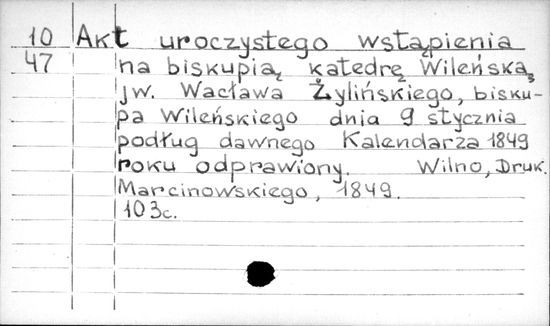 10 Akt uroczystego wstąpienia
47 na biskupią katedrę Wileńską,
jw. Wacława Żylińskiego, bisku-
pa Wileńskiego dnia 9 stycznia
podług dawnego Kalendarza 1849
roku odprawiony. Wilno, Druk.
Marcinowskiego, 1849.
103c.